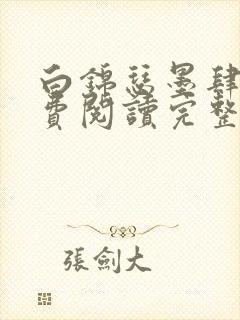 白錦瑟墨肆
費閱讀完整
張劍大